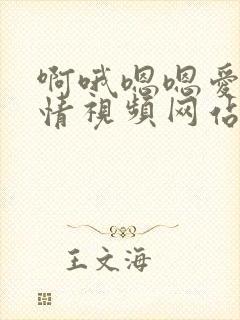 啊哦嗯嗯爱
情視頻网佔
王文海